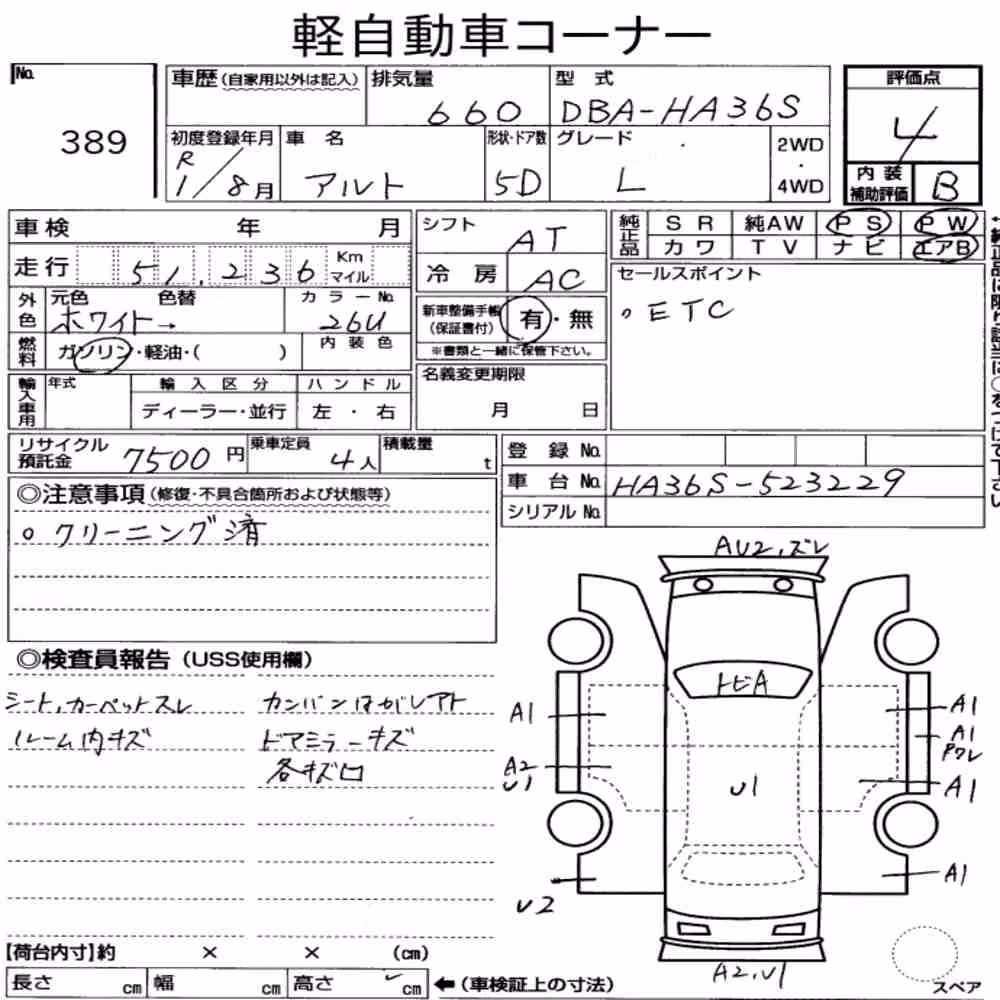 軽自動車コーナー
No.
389
車歴(自家用以外は記入)
排気量
660
型式
DBA-HA36S
評価点
4
初度登録年月
R
1/8月
車名
アルト
形状・ドア数
5D
グレード
L
2WD
・
4WD
内装
補助評価
B
車検 年 月
走行 51,236 Km
マイル
外色
元色 色替
ホワイト→
カラーNo.
26U
燃料
ガソリン・軽油・( )
内装色
輸入車用
年式
輸入区分
ディーラー・並行
ハンドル
左・右
シフト
AT
冷房
AC
新車整備手帳
(保証書付)
有・無
※書類と一緒に保管下さい。
名義変更期限
月 日
純正品
SR 純AW PS PW
カワ TV ナビ エアB
セールスポイント
。ETC
リサイクル
預託金
7500円
乗車定員
4人
積載量
t
登録No.
車台No. HA36S-523229
シリアルNo.
◎注意事項(修復・不具合箇所および状態等)
。クリーニング済
◎検査員報告(USS使用欄)
シート,カーペットスレ
ルーム内キズ
カンバンはがしアト
ドアミラーキズ
各キズ凹
AU2,ズレ
トビA
A1
A2
U1
U2
U1
A1
A1
Pワレ
A1
A1
A2,U1
スペア
【荷台内寸】約 × × (cm)
長さ cm 幅 cm 高さ cm
←(車検証上の寸法)